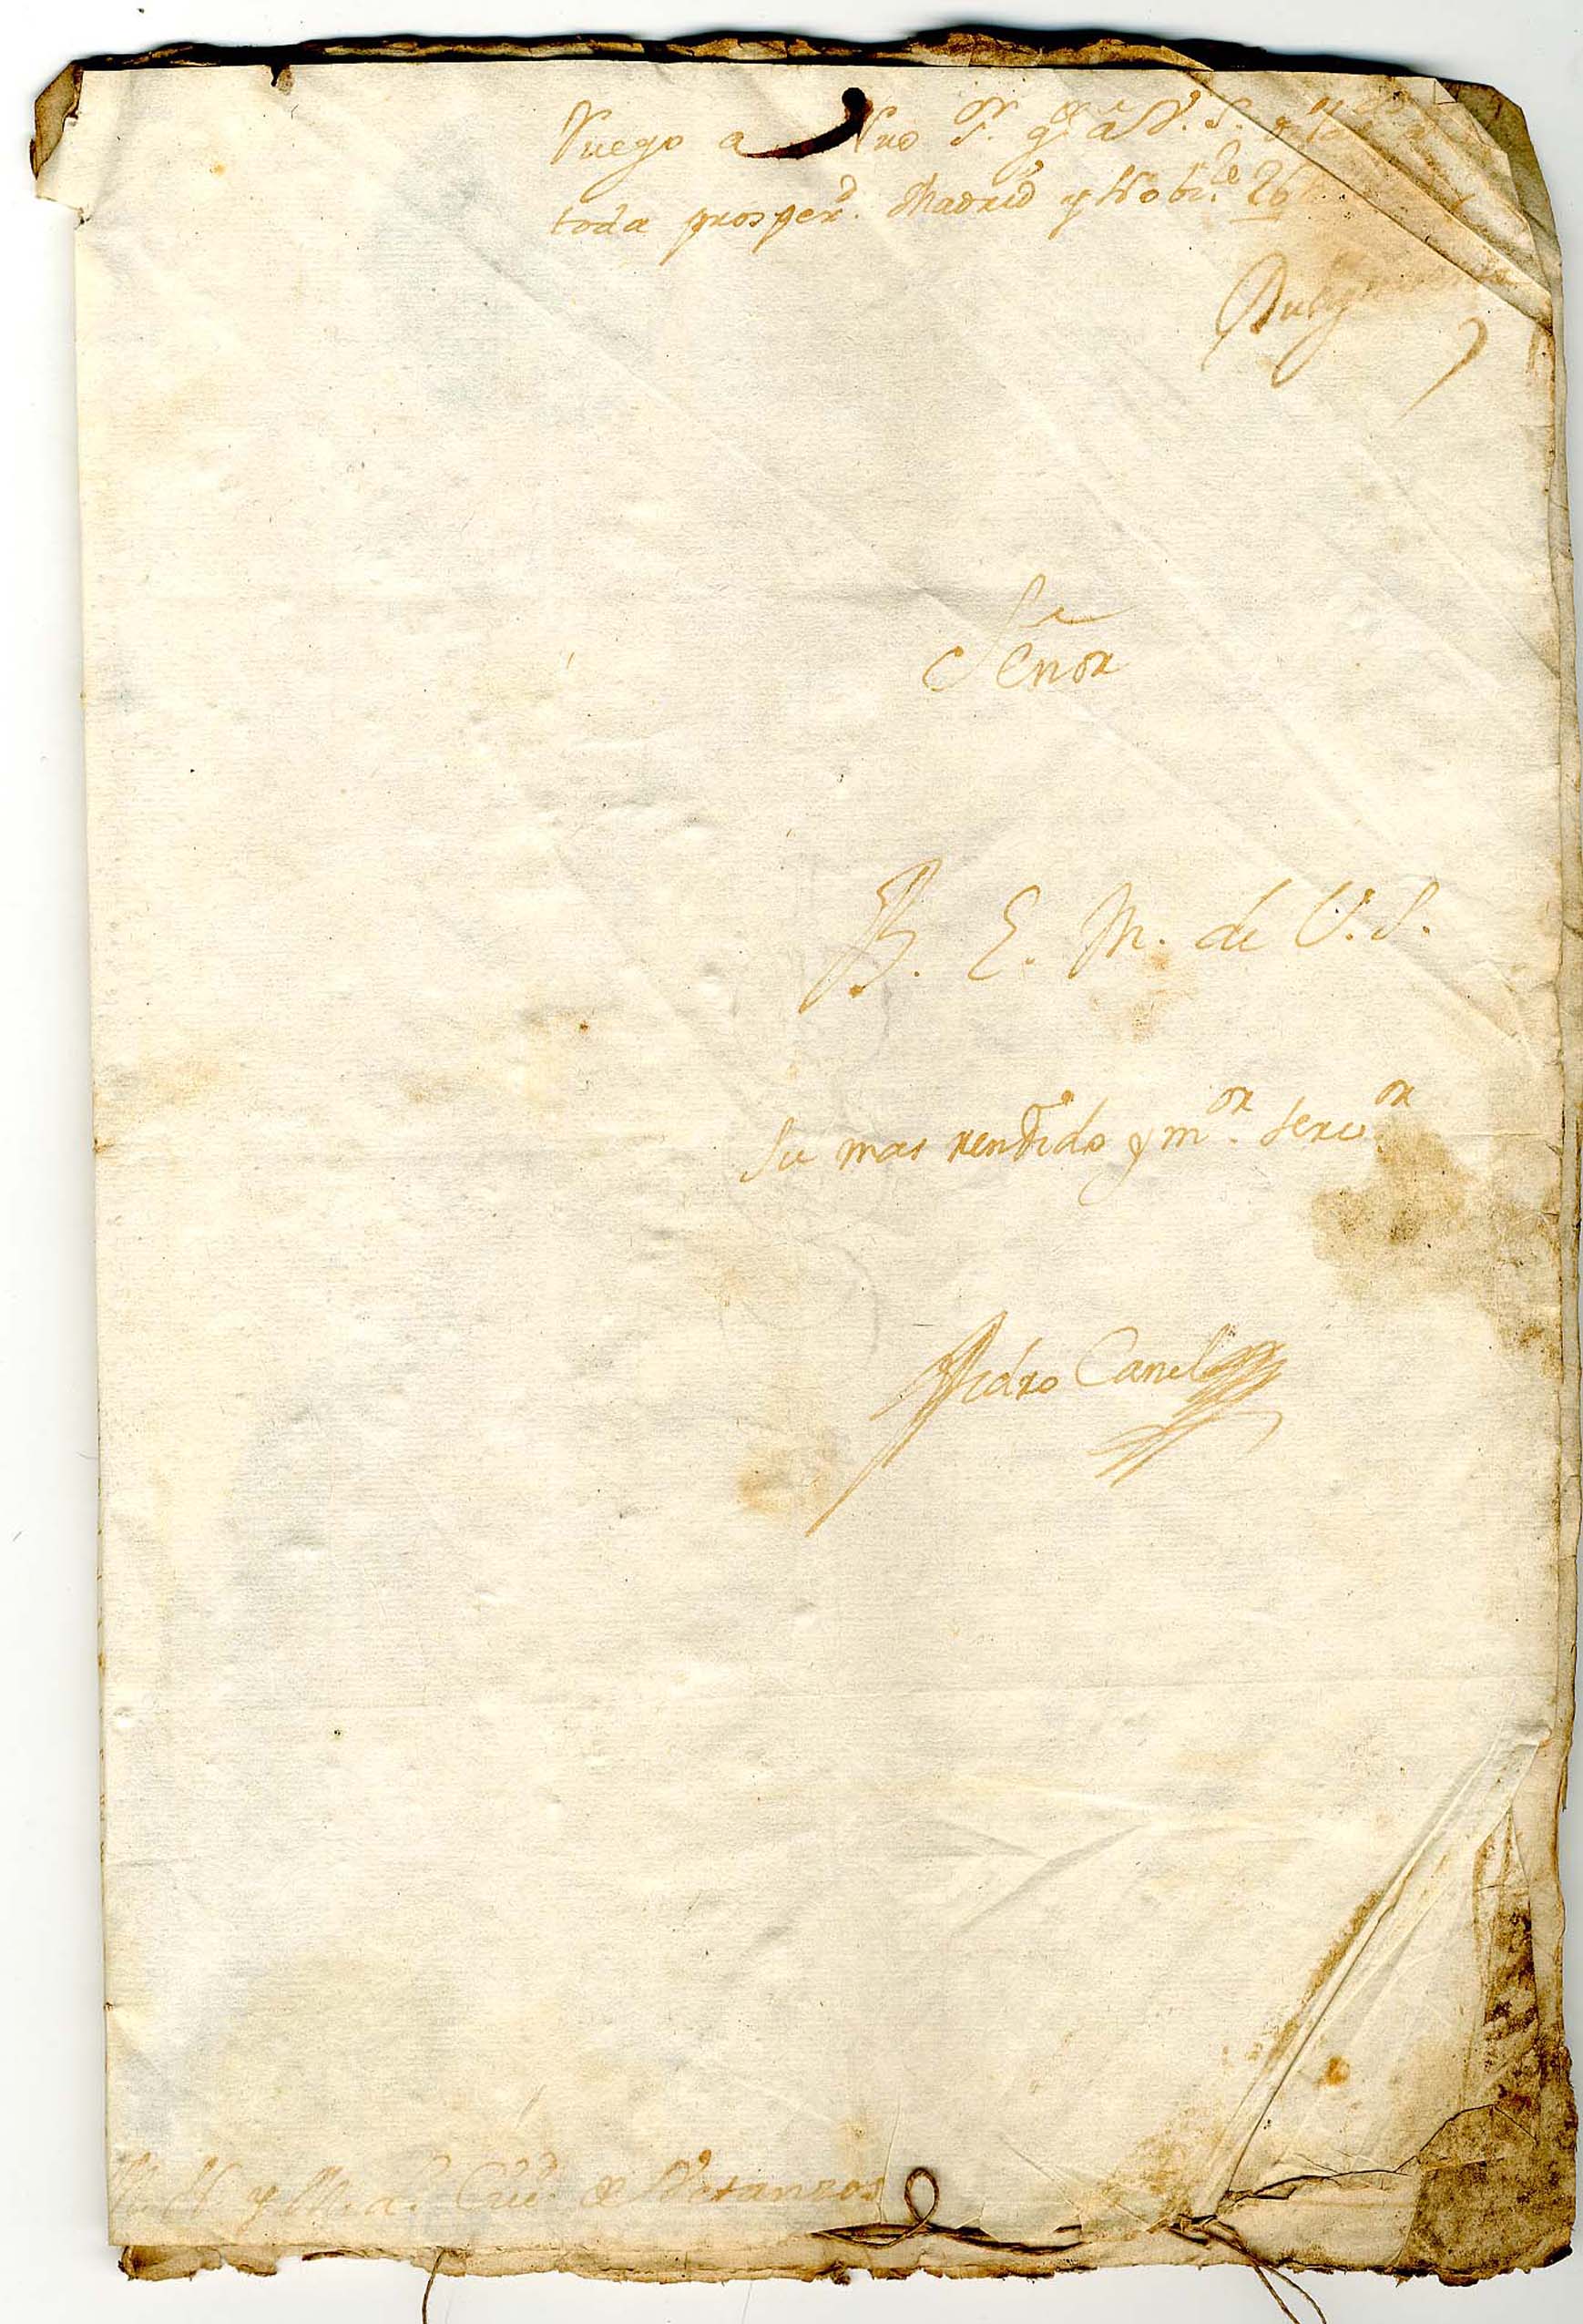 Ruego a Nro S.or g.de â V. S.
toda prosper.d Madrid y Nobre. 26
Señor
B. L. M. de V. S.
Su mas rendido y m.or serv.or
Pedro Canel
M. N. y M. L. Ciud. de Betanzos